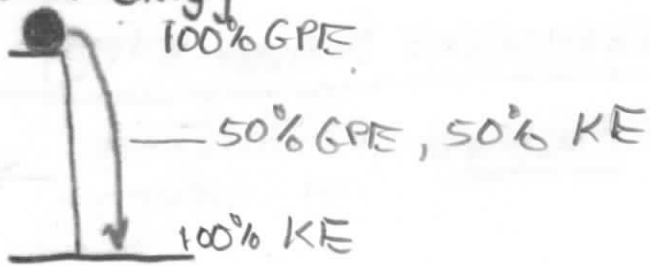 100% GPE
50% GPE, 50% KE
100% KE